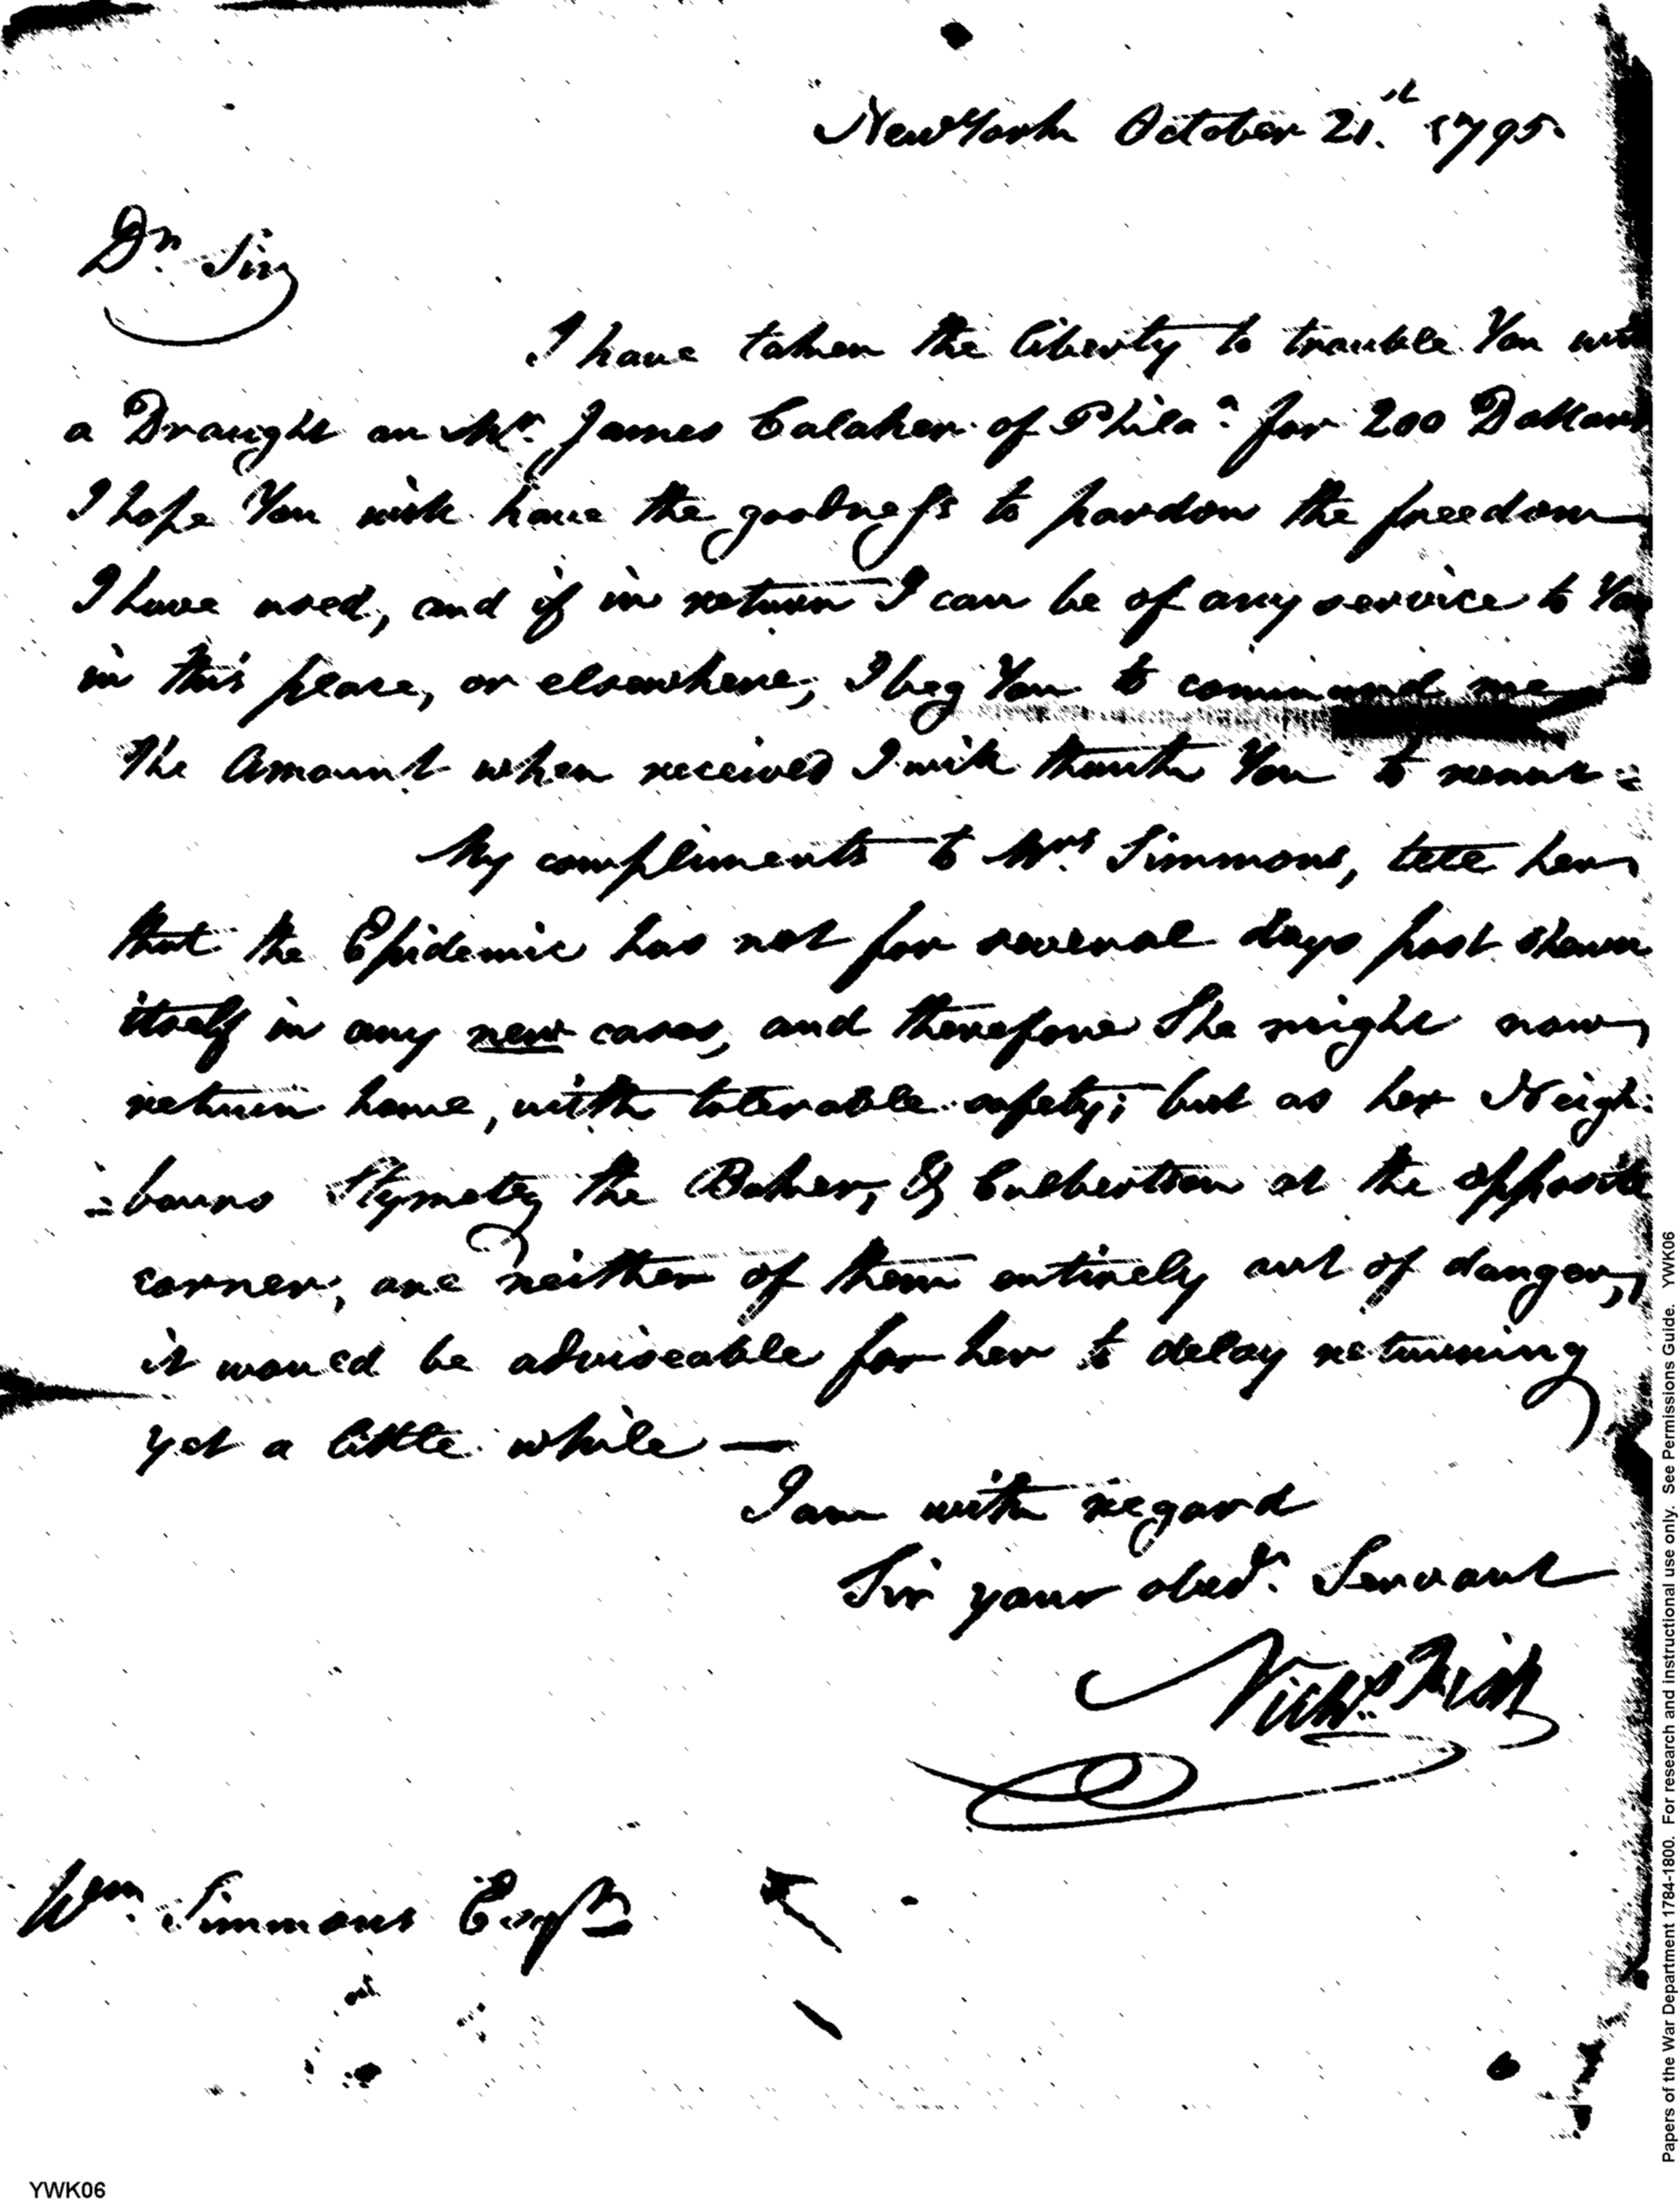 New York October 21.st 1795.
Dr. Sir
I have taken the liberty to trouble You with
a Draught on Mr. James Calaker of Phila.a for 200 Dollars
I hope You will have the goodness to pardon the freedom
I have used, and if in return I can be of any service to You
in this place, or elsewhere, I beg You to command me
The Amount when received I will thank You to remit =
My compliments to Mrs. Simmons, tell her
that the Epidemic has not for several days past shewn
itself in any new cases, and therefore She might now
return home, with tolerable safety; but as her Neigh:
=bours Stymetz the Baker, & Culbertson at the opposite
corner, are neither of them entirely out of danger,
it would be adviseable for her to delay returning
yet a little while —
I am with regard
Sir your obedt. Servant
Nichs. Fish
Wm. Simmons Esqr
YWK06
Papers of the War Department 1784-1800. For research and instructional use only. See Permissions Guide. YWK06